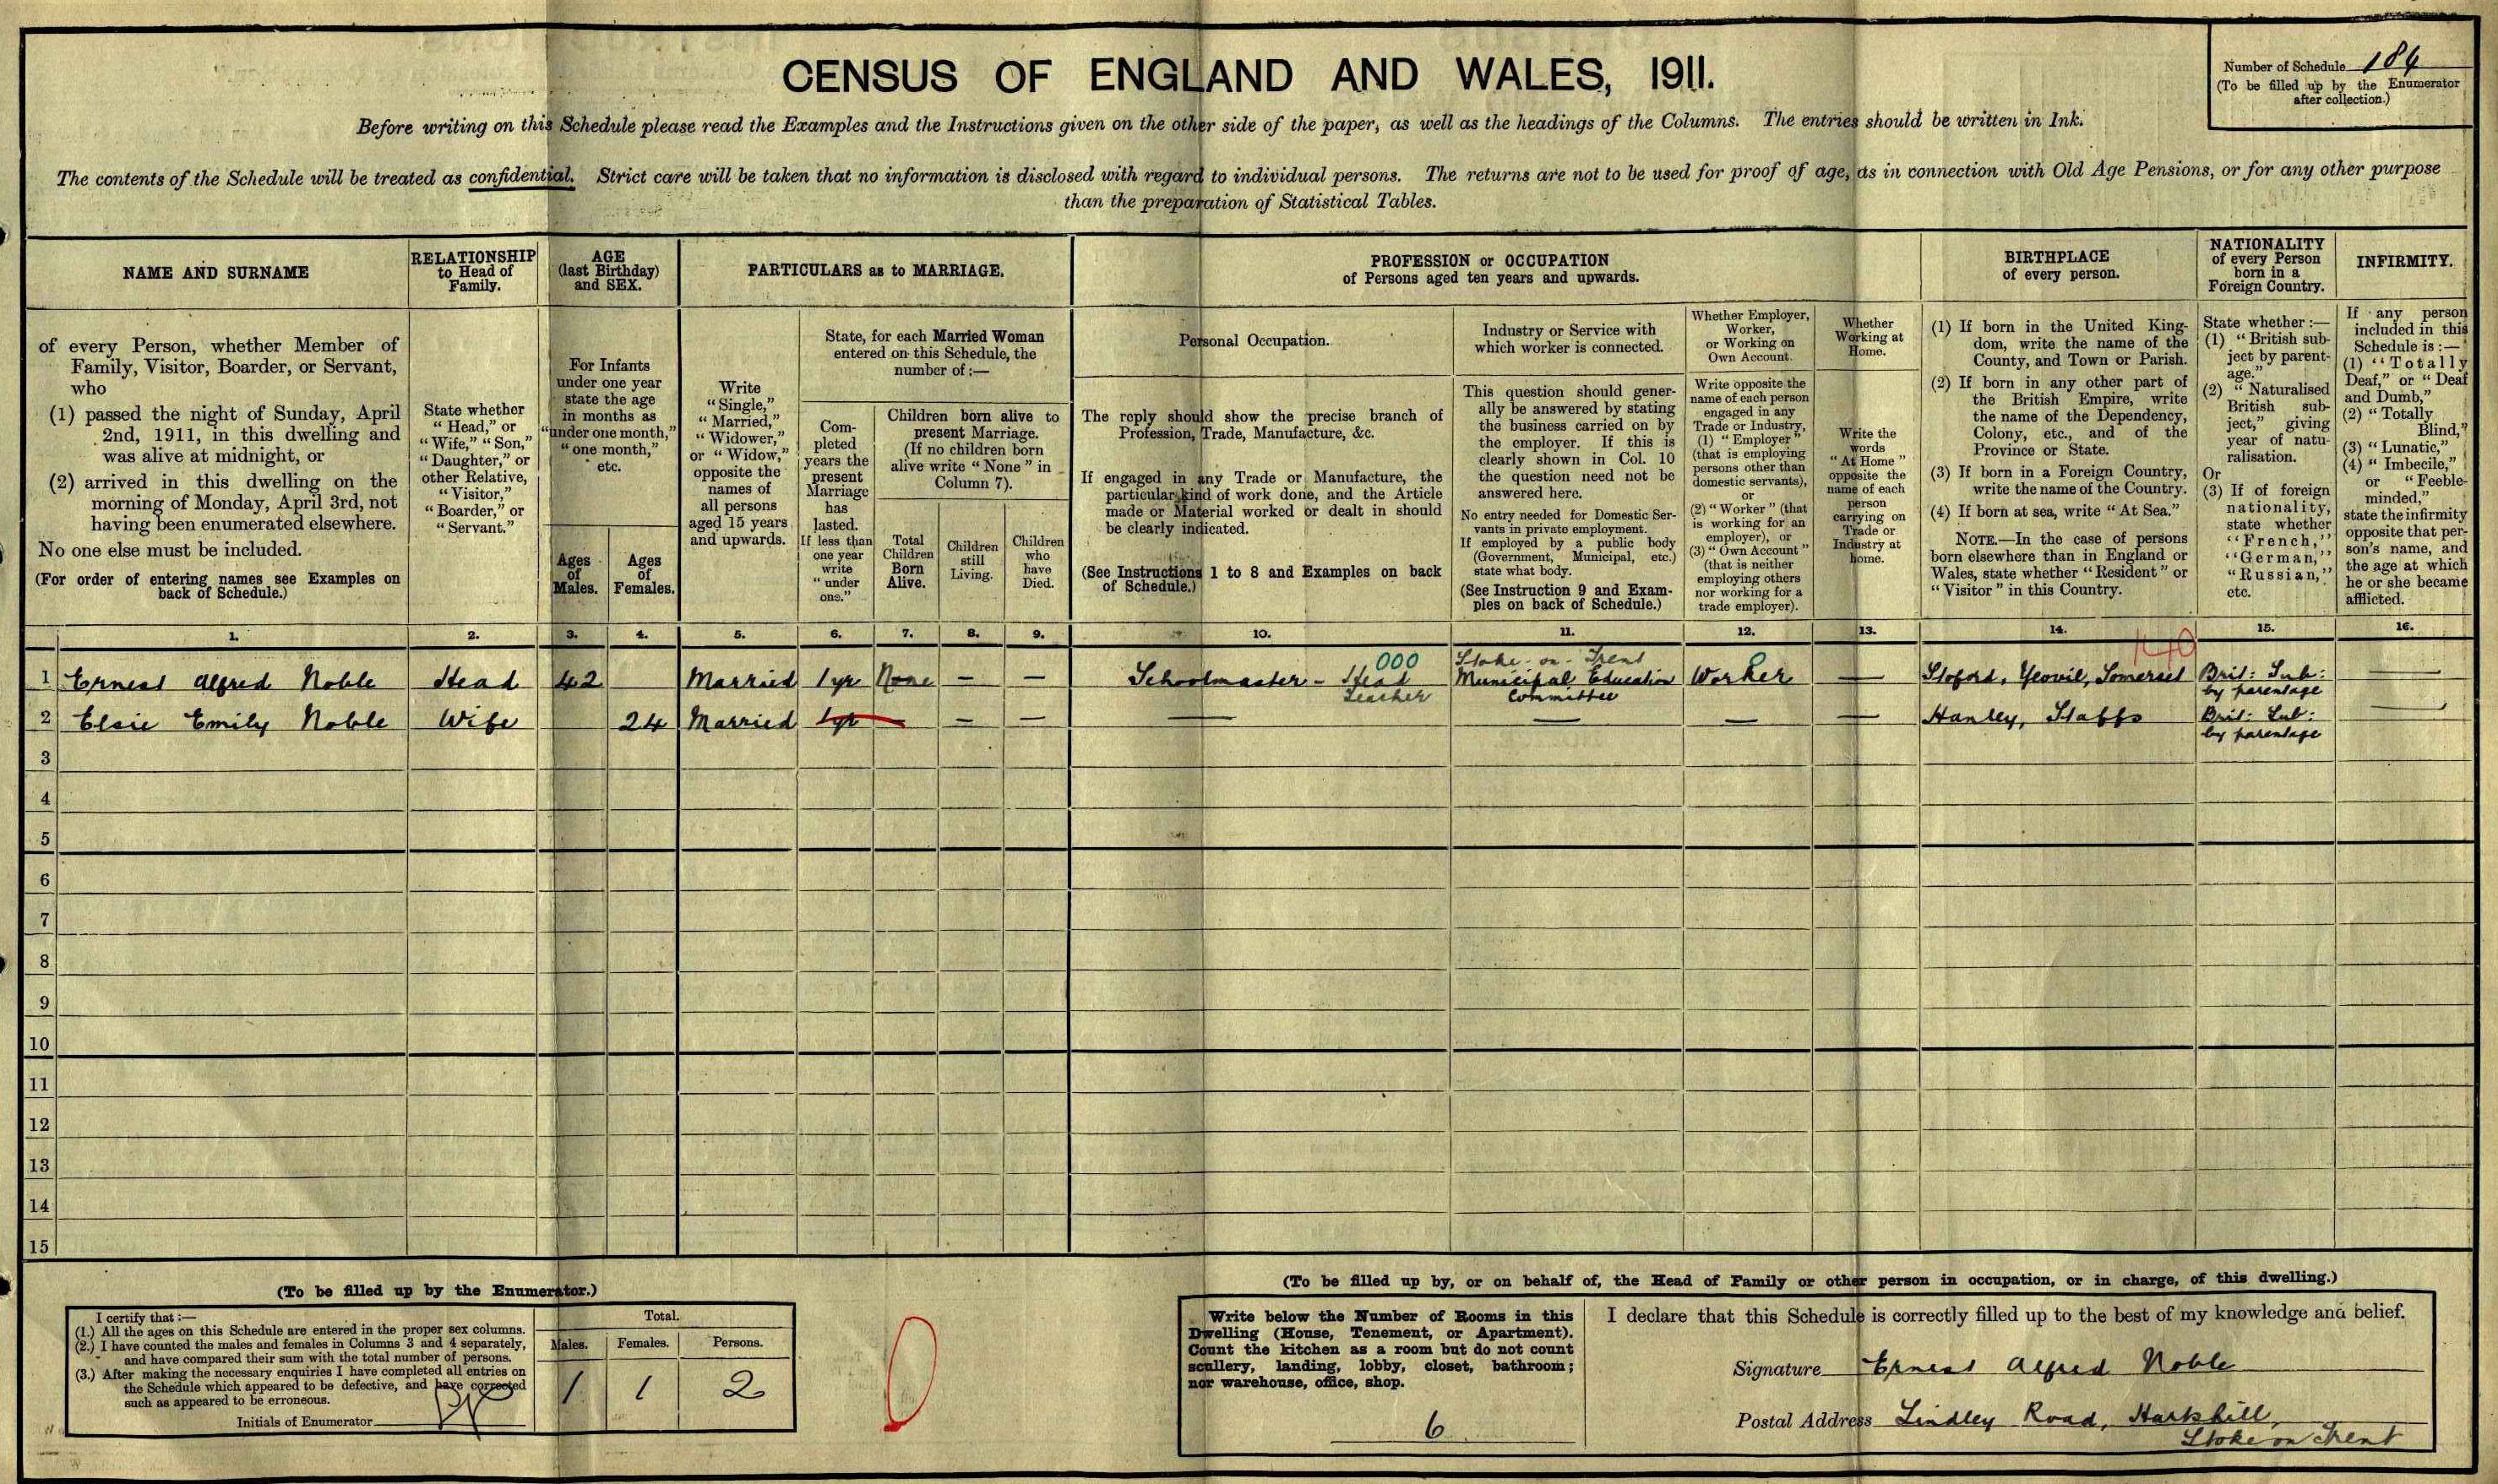 CENSUS OF ENGLAND AND WALES, 1911.
Number of Schedule 184
(To be filled up by the Enumerator
after collection.)
Before writing on this Schedule please read the Examples and the Instructions given on the other side of the paper, as well as the headings of the Columns. The entries should be written in Ink.
The contents of the Schedule will be treated as confidential. Strict care will be taken that no information is disclosed with regard to individual persons. The returns are not to be used for proof of age, as in connection with Old Age Pensions, or for any other purpose
than the preparation of Statistical Tables.
NAME AND SURNAME
of every Person, whether Member of
Family, Visitor, Boarder, or Servant,
who
(1) passed the night of Sunday, April
2nd, 1911, in this dwelling and
was alive at midnight, or
(2) arrived in this dwelling on the
morning of Monday, April 3rd, not
having been enumerated elsewhere.
No one else must be included.
(For order of entering names see Examples on
back of Schedule.)
RELATIONSHIP
to Head of
Family.
State whether
"Head," or
"Wife," "Son,"
"Daughter," or
other Relative,
"Visitor,"
"Boarder," or
"Servant."
AGE
(last Birthday)
and SEX.
For Infants
under one year
state the age
in months as
"under one month,"
"one month,"
etc.
Ages
of
Males.
Ages
of
Females.
PARTICULARS as to MARRIAGE.
Write
"Single,"
"Married,"
"Widower,"
or "Widow,"
opposite the
names of
all persons
aged 15 years
and upwards.
State, for each Married Woman
entered on this Schedule, the
number of :—
Com-
pleted
years the
present
Marriage
has
lasted.
If less than
one year
write
"under
one."
Children born alive to
present Marriage.
(If no children born
alive write "None" in
Column 7).
Total
Children
Born
Alive.
Children
still
Living.
Children
who
have
Died.
PROFESSION or OCCUPATION
of Persons aged ten years and upwards.
Personal Occupation.
The reply should show the precise branch of
Profession, Trade, Manufacture, &c.
If engaged in any Trade or Manufacture, the
particular kind of work done, and the Article
made or Material worked or dealt in should
be clearly indicated.
(See Instructions 1 to 8 and Examples on back
of Schedule.)
Industry or Service with
which worker is connected.
This question should gener-
ally be answered by stating
the business carried on by
the employer. If this is
clearly shown in Col. 10
the question need not be
answered here.
No entry needed for Domestic Ser-
vants in private employment.
If employed by a public body
(Government, Municipal, etc.)
state what body.
(See Instruction 9 and Exam-
ples on back of Schedule.)
Whether Employer,
Worker,
or Working on
Own Account.
Write opposite the
name of each person
engaged in any
Trade or Industry,
(1) "Employer"
(that is employing
persons other than
domestic servants),
or
(2) "Worker" (that
is working for an
employer), or
(3) "Own Account"
(that is neither
employing others
nor working for a
trade employer).
Whether
Working at
Home.
Write the
words
"At Home"
opposite the
name of each
person
carrying on
Trade or
Industry at
home.
BIRTHPLACE
of every person.
(1) If born in the United King-
dom, write the name of the
County, and Town or Parish.
(2) If born in any other part of
the British Empire, write
the name of the Dependency,
Colony, etc., and of the
Province or State.
(3) If born in a Foreign Country,
write the name of the Country.
(4) If born at sea, write "At Sea."
NOTE.—In the case of persons
born elsewhere than in England or
Wales, state whether "Resident" or
"Visitor" in this Country.
NATIONALITY
of every Person
born in a
Foreign Country.
State whether :—
(1) "British sub-
ject by parent-
age."
(2) "Naturalised
British sub-
ject," giving
year of natu-
ralisation.
Or
(3) If of foreign
nationality,
state whether
"French,"
"German,"
"Russian,"
etc.
INFIRMITY.
If any person
included in this
Schedule is :—
(1) "Totally
Deaf," or "Deaf
and Dumb,"
(2) "Totally
Blind,"
(3) "Lunatic,"
(4) "Imbecile,"
or "Feeble-
minded,"
state the infirmity
opposite that per-
son's name, and
the age at which
he or she became
afflicted.
1. 2. 3. 4. 5. 6. 7. 8. 9. 10. 11. 12. 13. 14. 15. 16.
140
000 Stoke-on-Trent
1 Ernest Alfred Noble Head 42 Married 1 yr None — — Schoolmaster - Head Municipal Education Worker — Stoford, Yeovil, Somerset Brit: Sub: —
Teacher Committee by parentage
2 Elsie Emily Noble Wife 24 Married 1 yr — — — — — — — Hanley, Staffs Brit: Sub: —
by parentage
3
4
5
6
7
8
9
10
11
12
13
14
15
(To be filled up by the Enumerator.)
I certify that :—
(1.) All the ages on this Schedule are entered in the proper sex columns.
(2.) I have counted the males and females in Columns 3 and 4 separately,
and have compared their sum with the total number of persons.
(3.) After making the necessary enquiries I have completed all entries on
the Schedule which appeared to be defective, and have corrected
such as appeared to be erroneous.
Initials of Enumerator
Total.
Males. Females. Persons.
1 1 2
0
(To be filled up by, or on behalf of, the Head of Family or other person in occupation, or in charge, of this dwelling.)
Write below the Number of Rooms in this
Dwelling (House, Tenement, or Apartment).
Count the kitchen as a room but do not count
scullery, landing, lobby, closet, bathroom;
nor warehouse, office, shop.
6
I declare that this Schedule is correctly filled up to the best of my knowledge and belief.
Signature Ernest Alfred Noble
Postal Address Lindley Road, Hartshill,
Stoke on Trent